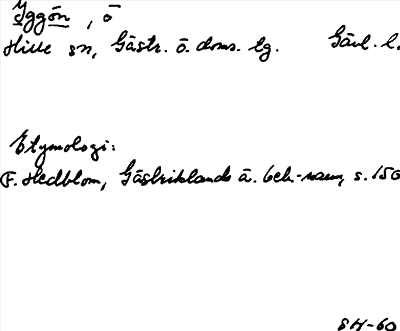 Iggön, ö
Hille sn, Gästr. ö. doms. tg. Gävl. l.
Etymologi:
F. Hedblom, Gästriklands ä. beb.-namn, s. 150
SH-60